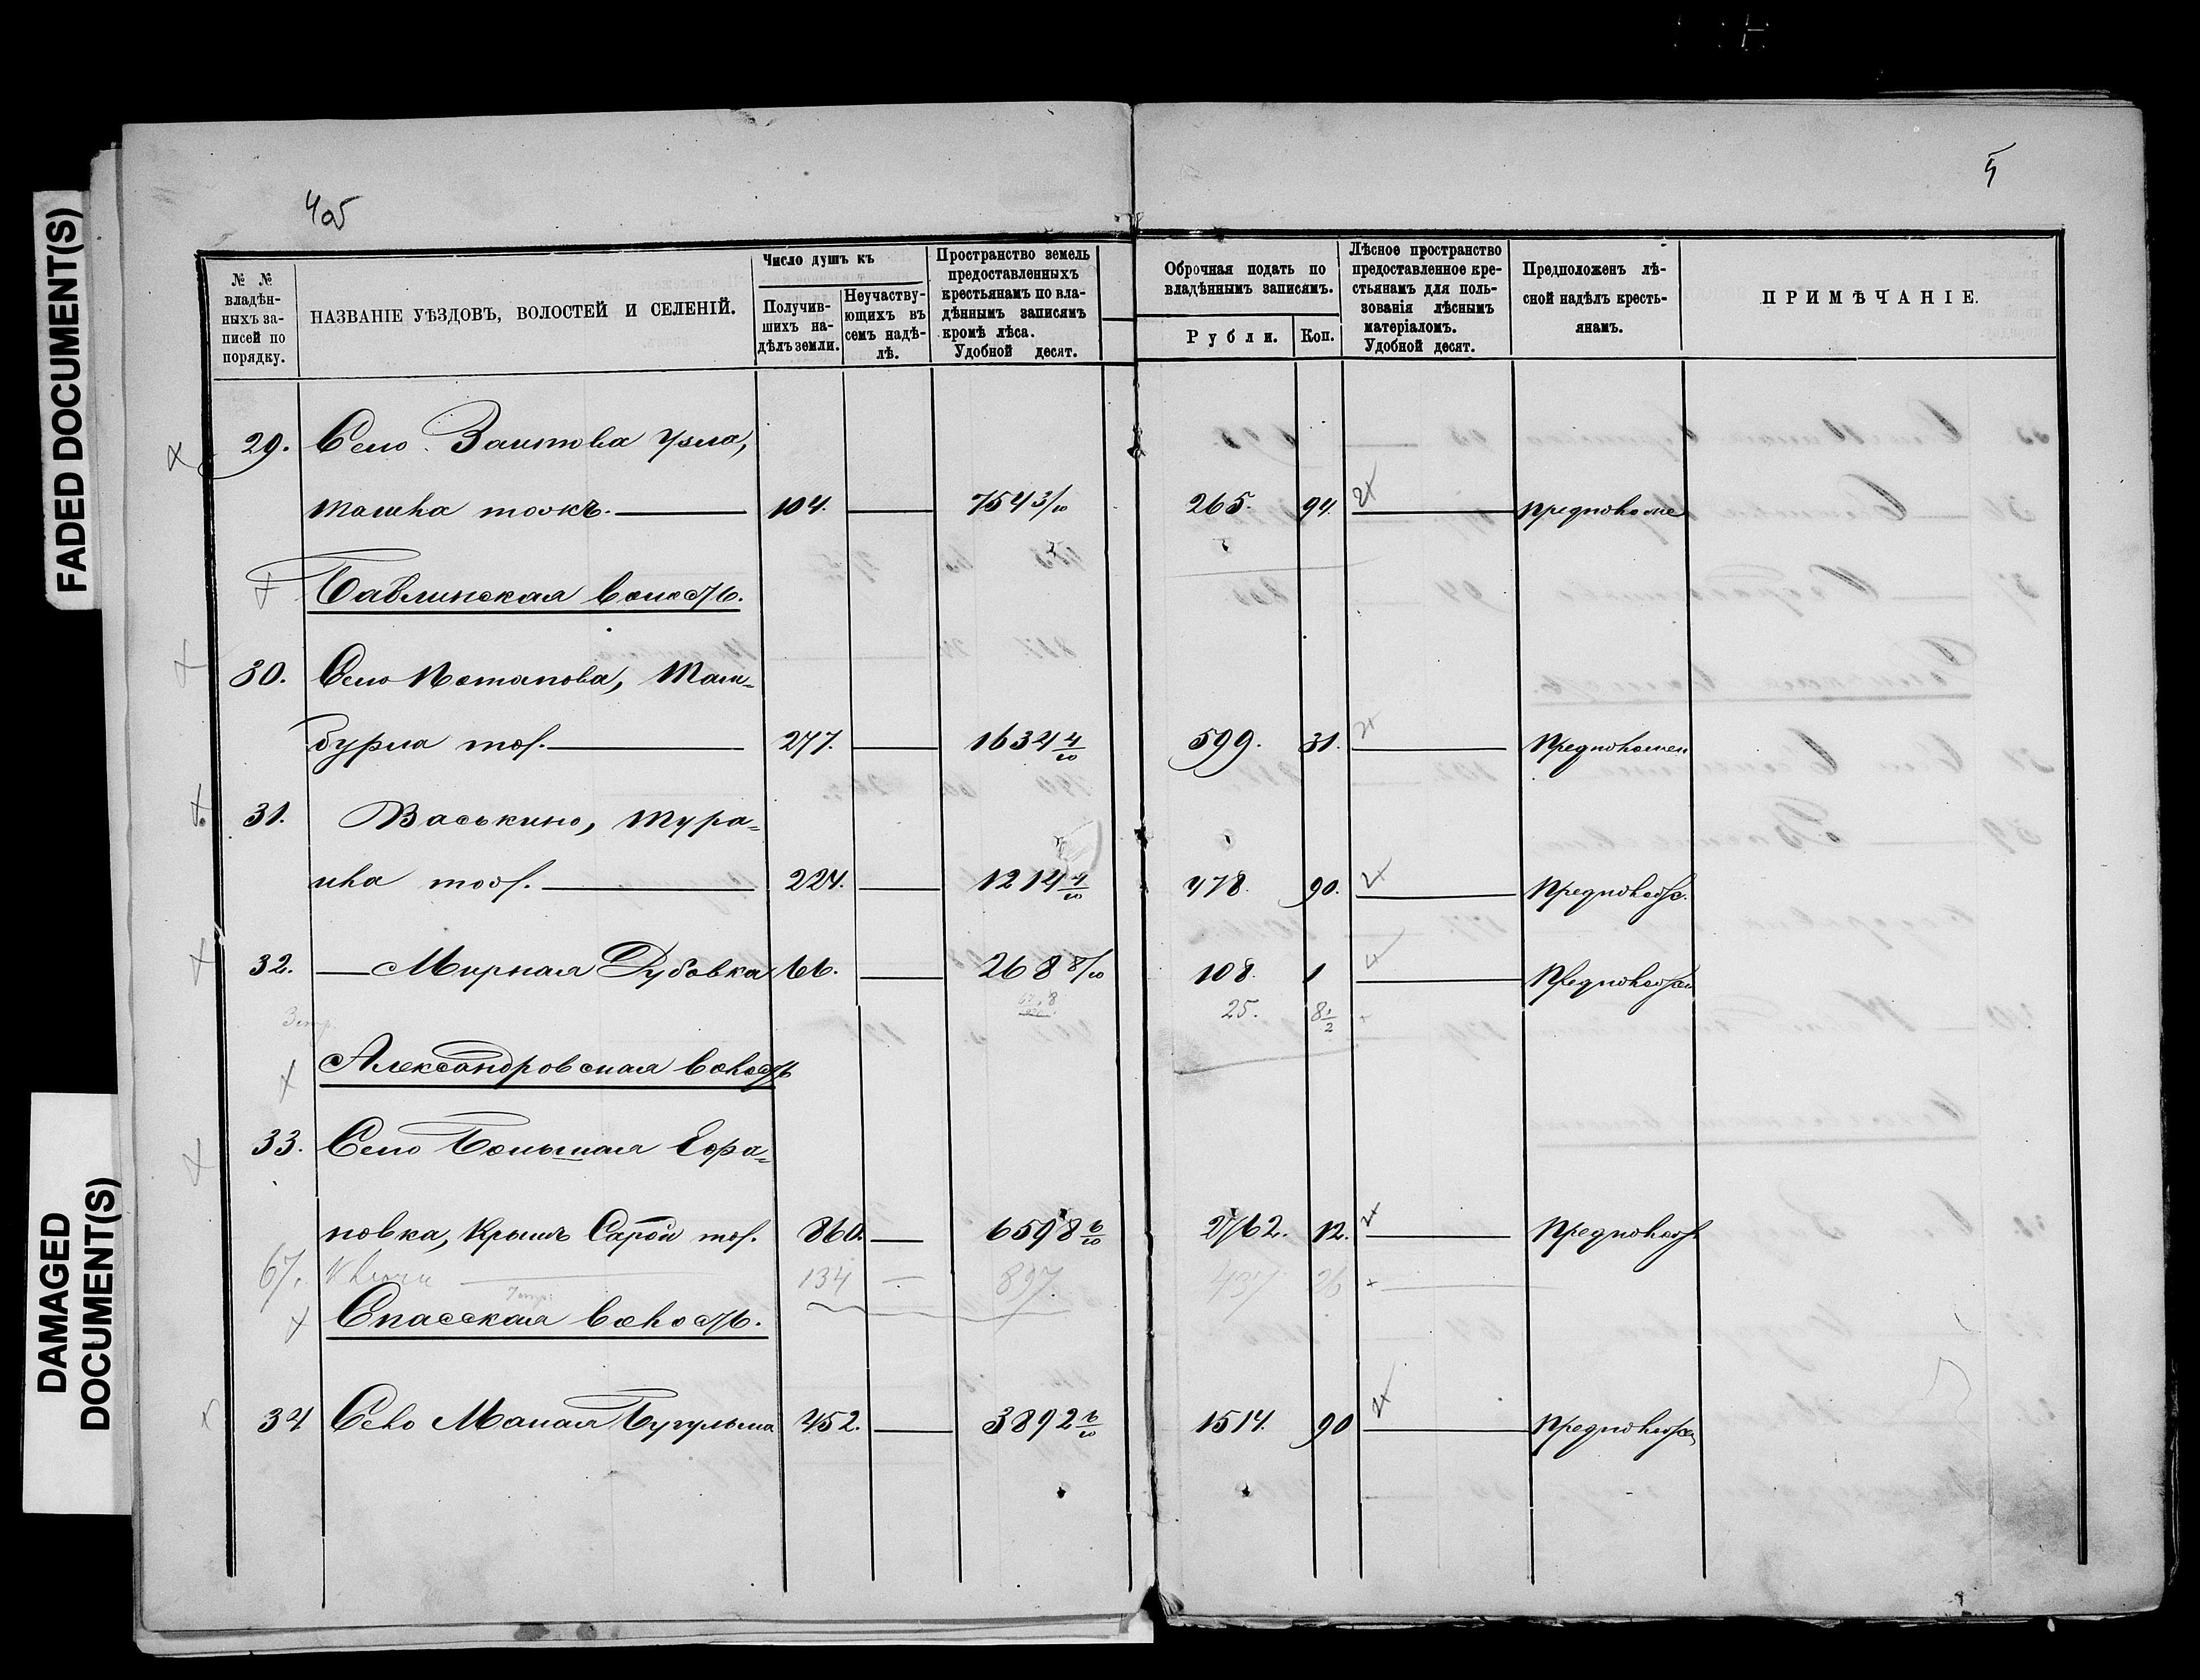 FADED DOCUMENT(S)
DAMAGED DOCUMENT(S)
4об
5
№ № владѣнныхъ записей по порядку.
НАЗВАНІЕ УѢЗДОВЪ, ВОЛОСТЕЙ И СЕЛЕНІЙ.
Число душъ къ
Получившихъ надѣлъ земли.
Неучаствующихъ въ семъ надѣлѣ.
Пространство земель предоставленныхъ крестьянамъ по владѣннымъ записямъ кромѣ лѣса. Удобной десят.
Оброчная подать по владѣннымъ записямъ.
Рубли. Коп.
Лѣсное пространство предоставленное крестьянамъ для пользованія лѣснымъ матеріаломъ. Удобной десят.
Предположенъ лѣсной надѣлъ крестьянамъ.
ПРИМѢЧАНІЕ.
29. Село Заитова Узла,
Машка тожъ. 104. 754 3/10 265. 94.
Бавлинская волость.
30. Село Потапова, Там-
бурла тож. 277. 1634 4/10 599. 31. Предположен
31. Васькино, Тура-
тож. 224. 1214 4/10 478. 90. Предполож.
32. — Мирная Дубовка 66. 268 8/10 108. 1 Предположен
25. 8 1/2
Александровская волость
33. Село Большая Ефа-
новка, Крымъ Сарай тож. 860. 6598 6/10 2762. 12. Предполож
67. Ключи 134 — 897. 26
Спасская волость.
34 Село Малая Бугульма 452. 3892 6/10 1514. 90 Предположен